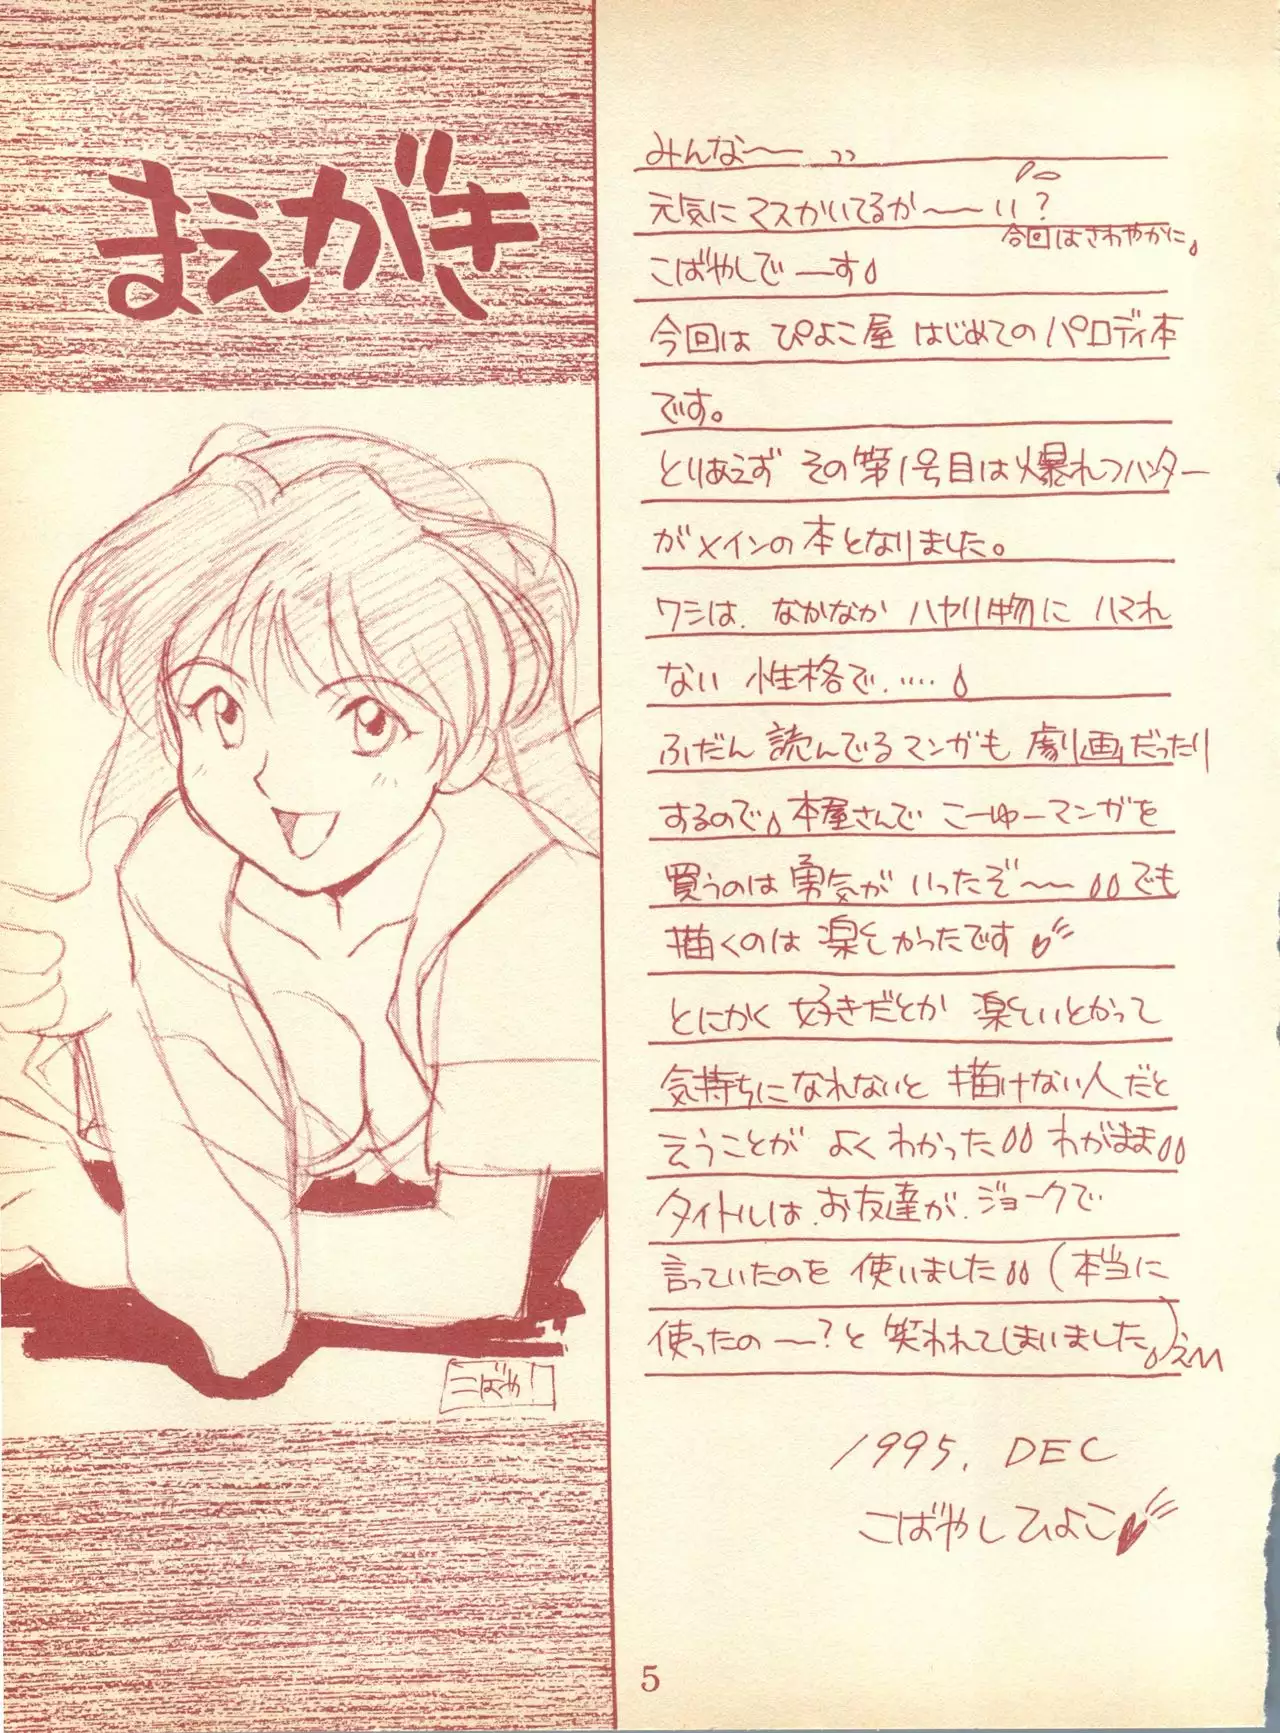 まえがき
みんな〜〜 っっ
元気にマスかいてるか〜〜い?
今回はさわやかに。
こばやしで〜す
今回は ぴよこ屋 はじめてのパロディ本
です。
とりあえず その第1号目は爆れつハンター
がメインの本となりました。
ワシは、なかなか ハヤリ物に ハマれ
ない 性格で.....
ふだん 読んでるマンガも 劇画だったり
するので 本屋さんで こーゆーマンガを
買うのは 勇気が いったぞ〜〜 でも
描くのは 楽しかったです
とにかく 好きだとか 楽しいとかって
気持ちになれないと 描けない人だと
言うことが よく わかった わがまま
タイトルは、お友達が、ジョークで
言っていたのを 使いました (本当に
使ったの〜〜?と 笑われてしまいました)
1995. DEC
こばやしひよこ
こばや!
5